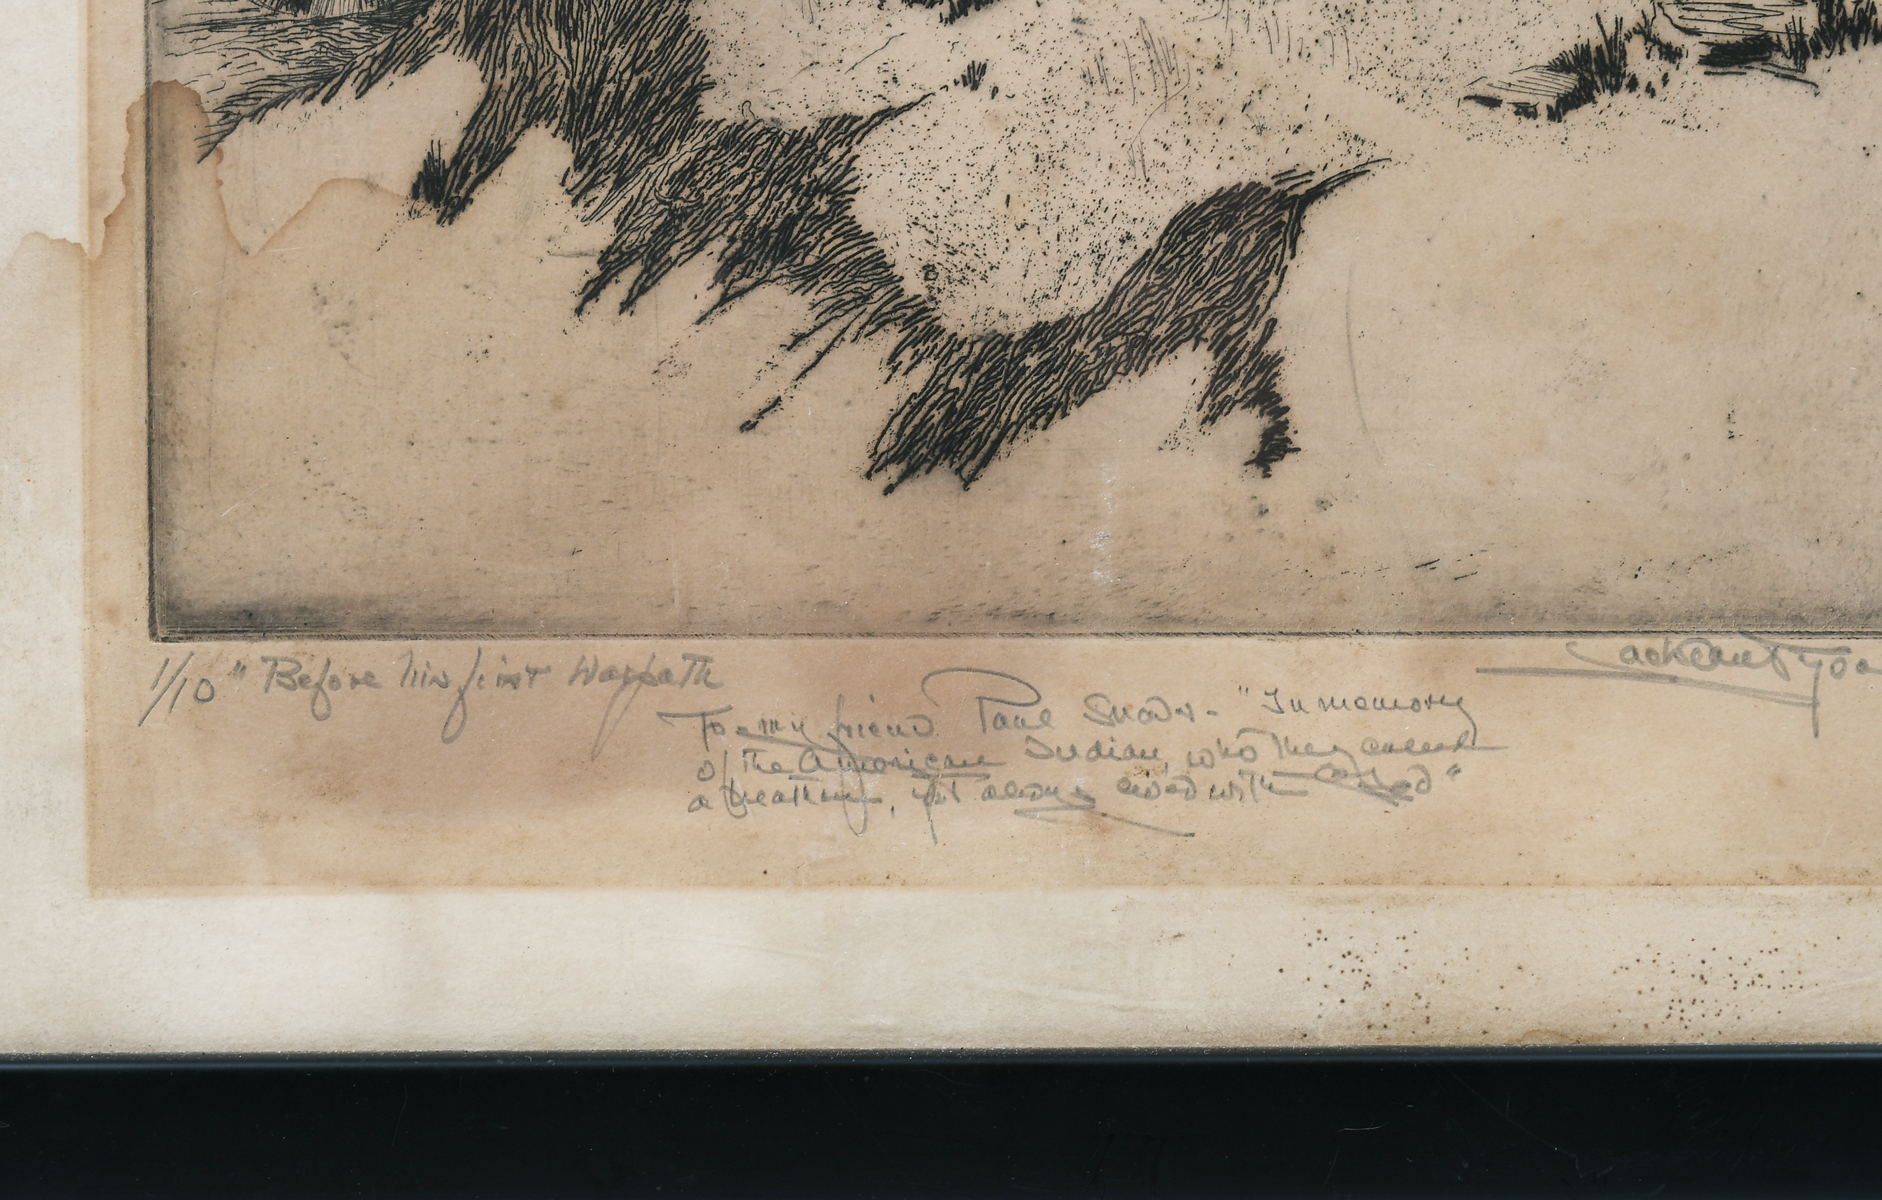 1/10 "Before his first Warpath
To my friend Paul - "In memory
of the American Indian, who they called
a heathen, yet always lived with God"